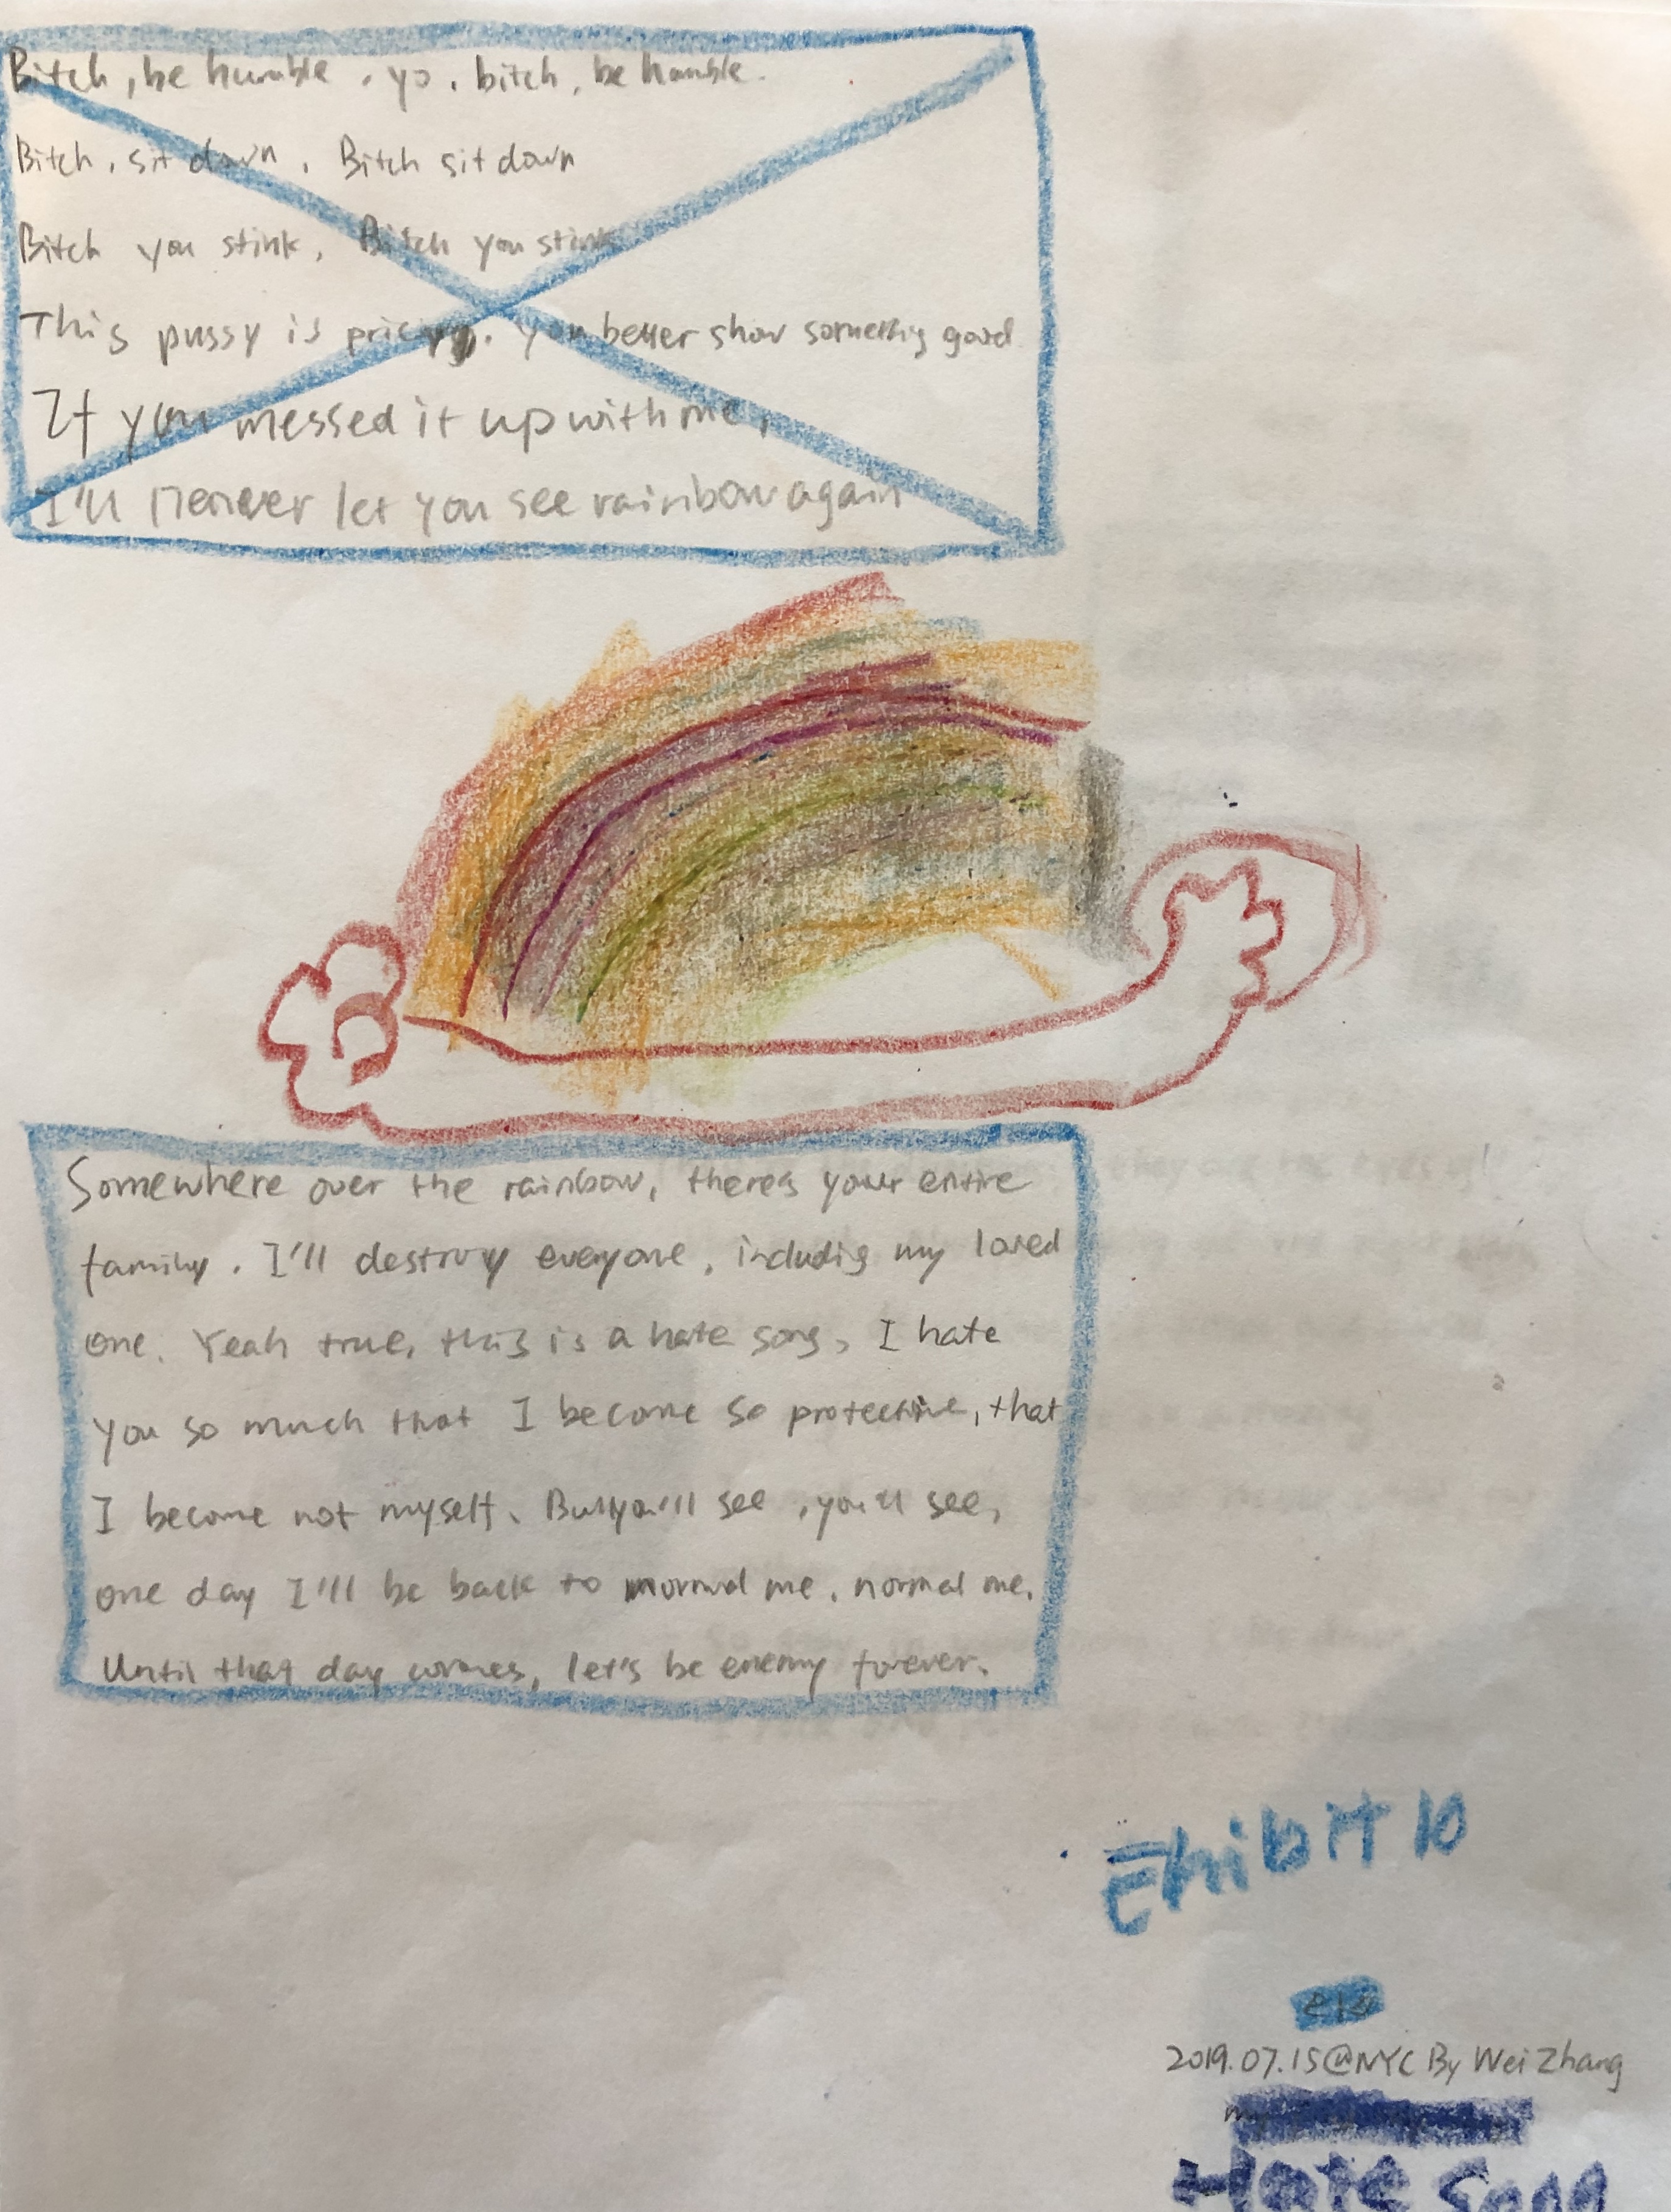 Bitch, be humble. yo. bitch, be humble.
Bitch, sit down. Bitch sit down
Bitch you stink, Bitch you stink
This pussy is pricey. you better show something good
If you messed it up with me,
I'll never let you see rainbow again
Somewhere over the rainbow, theres your entire
family. I'll destroy everyone, includig my loved
one. Yeah true, this is a hate song, I hate
you so much that I become so protective, that
I become not myself. But you'll see, you'll see,
one day I'll be back to normal me. normal me.
Until that day comes, let's be enemy forever.
Exhibit 10
2019.07.15@NYC By Wei Zhang
Hate Song